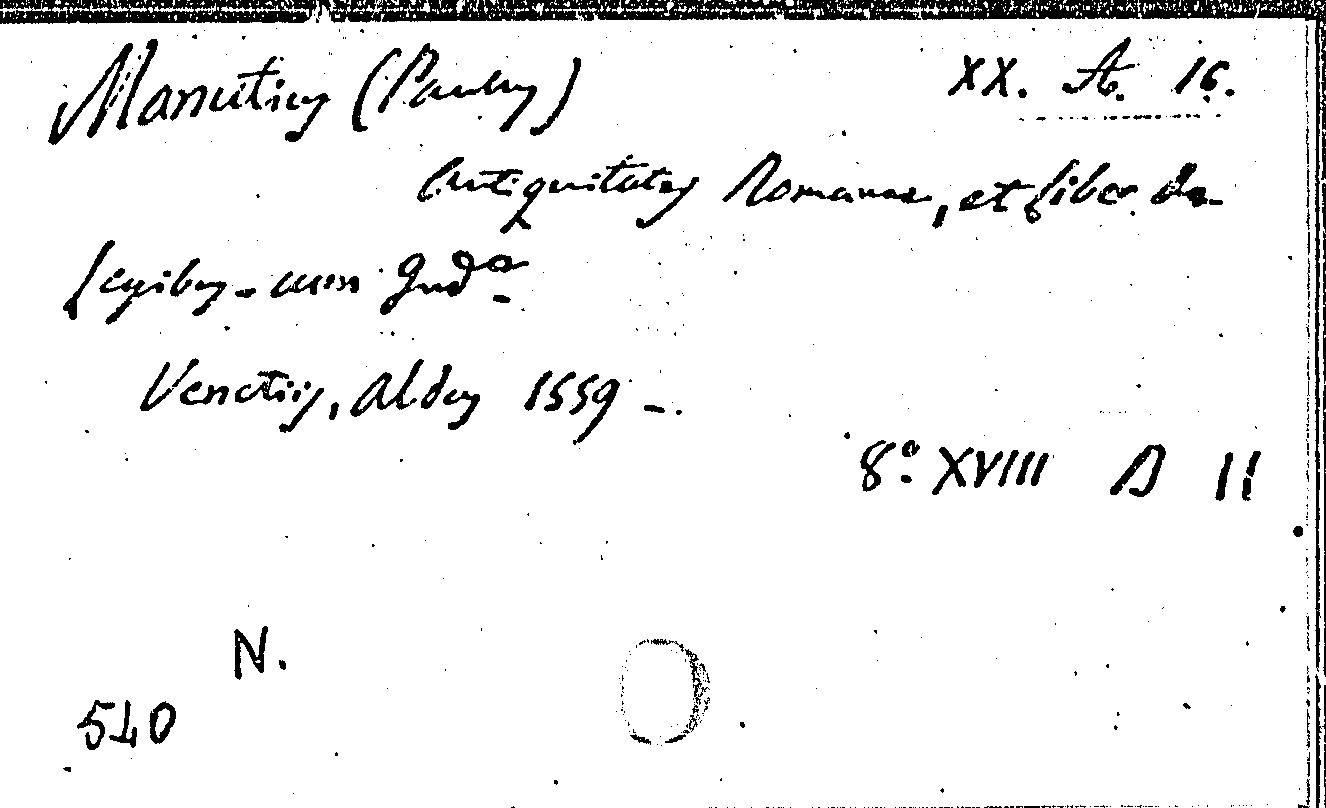 Manutius (Paulus) XX. A. 16.
Antiquitates Romanae, et liber de
legibus - cum Ind.e
Venetiis, Aldus 1559 -.
8º XVIII D 11
N.
540